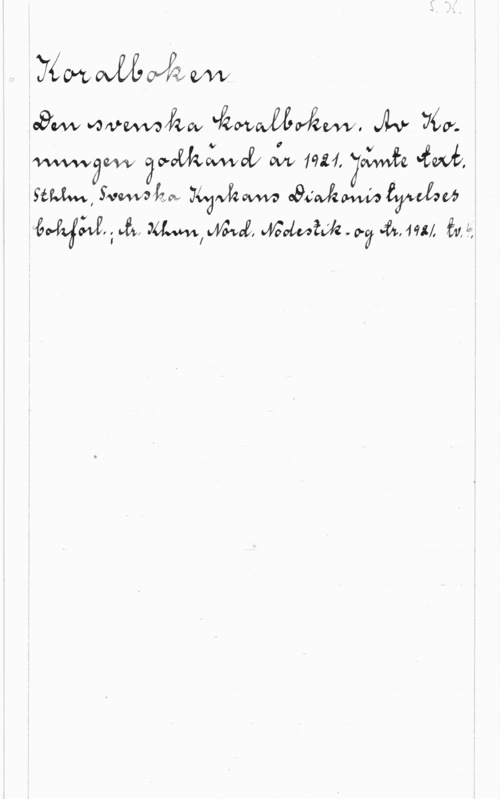 S. K.
Koralboken
Den svenska koralboken. Av Ko-
nungen godkänd år 1921. Jämte text.
Sthlm, Svenska Kyrkans Diakonistyrelses
bokförl.; tr. Khvn, Nord. Nodestik- og tr. 1921. tv. 4: